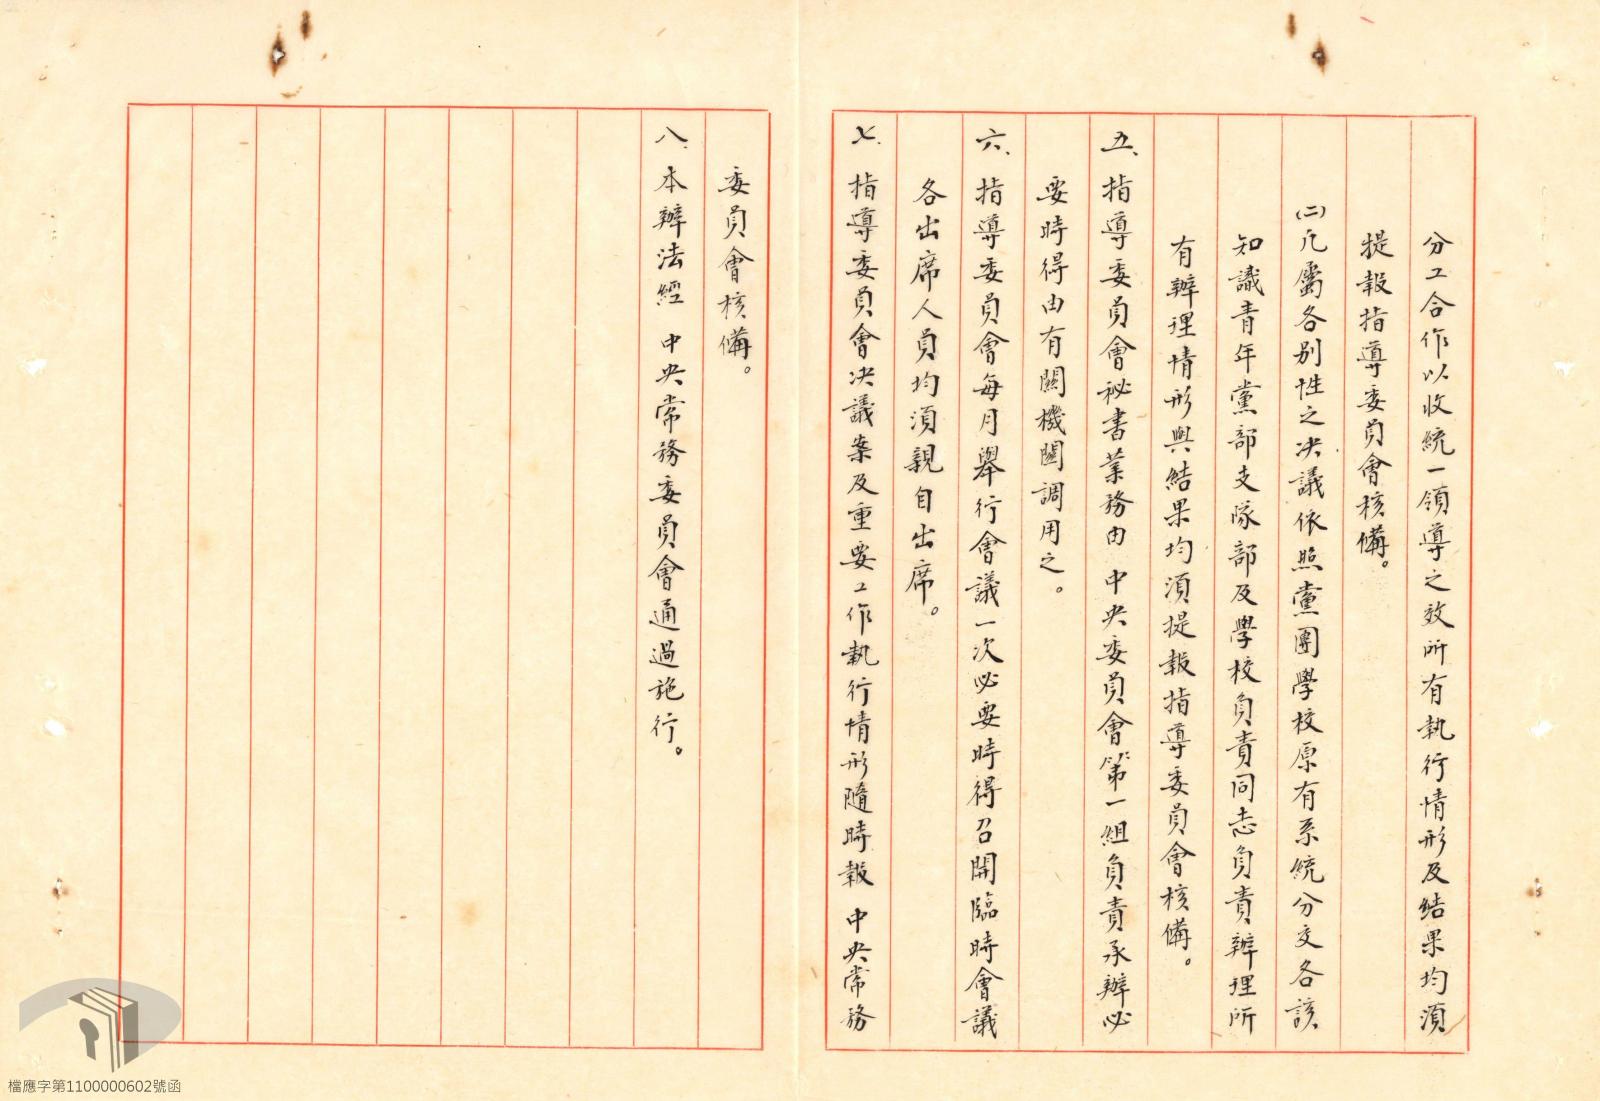 分工合作以收統一領導之效所有執行情形及結果均須
提報指導委員會核備。
(二)凡屬各別性之決議依照黨團學校原有系統分交各該
知識青年黨部支隊部及學校負責同志負責辦理所
有辦理情形與結果均須提報指導委員會核備。
五、指導委員會秘書業務由 中央委員會第一組負責承辦必
要時得由有關機關調用之。
六、指導委員會每月舉行會議一次必要時得召開臨時會議
各出席人員均須親自出席。
七、指導委員會決議案及重要工作執行情形隨時報 中央常務
委員會核備。
八、本辦法經 中央常務委員會通過施行。
檔應字第1100000602號函